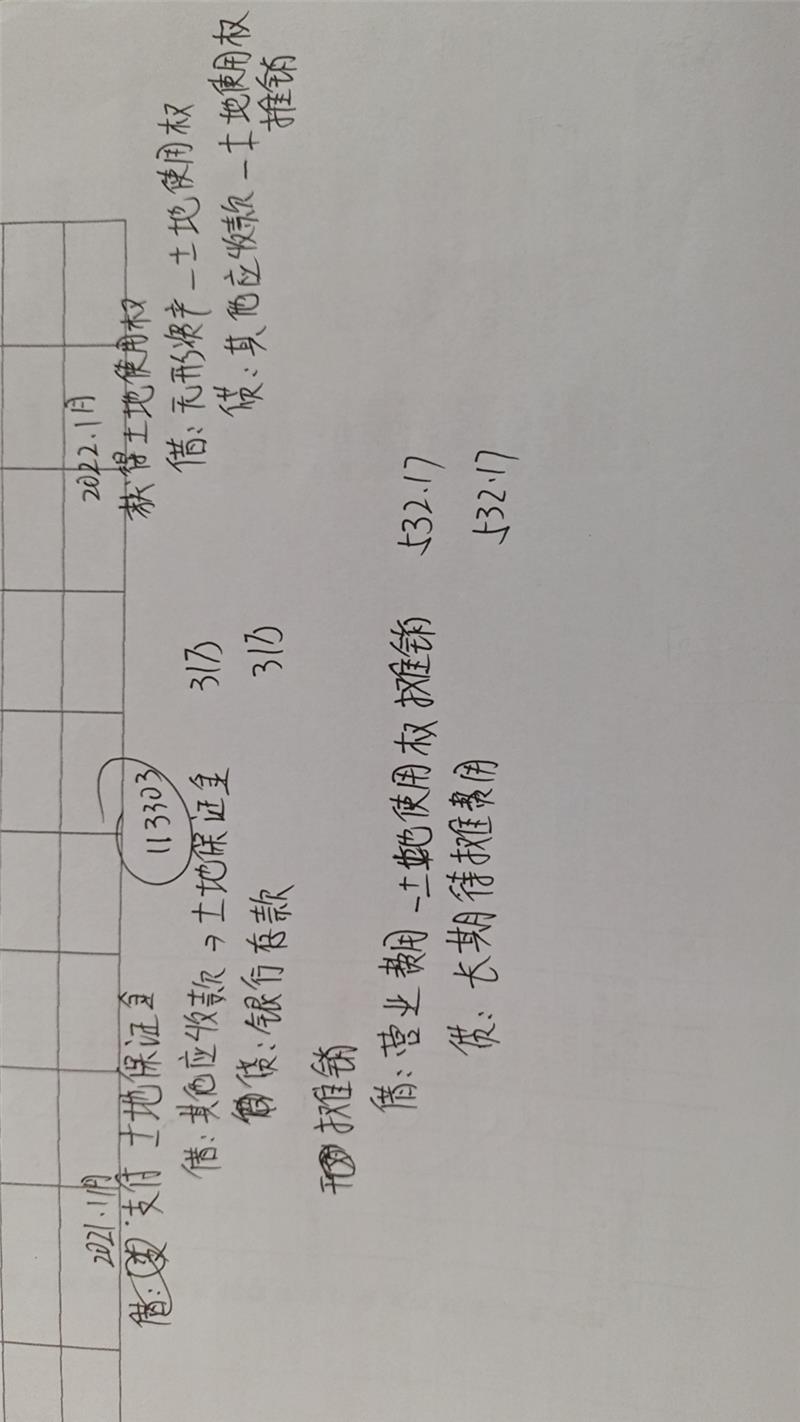 2021.11月
支付土地保证金
113303
借:其他应收款→土地保证金 31万
贷:银行存款 31万
摊销
借:营业费用-土地使用权摊销 532.17
贷:长期待摊费用 532.17
2022.1月
获得土地使用权
借:无形资产-土地使用权
贷:其他应收款-土地使用权
摊销